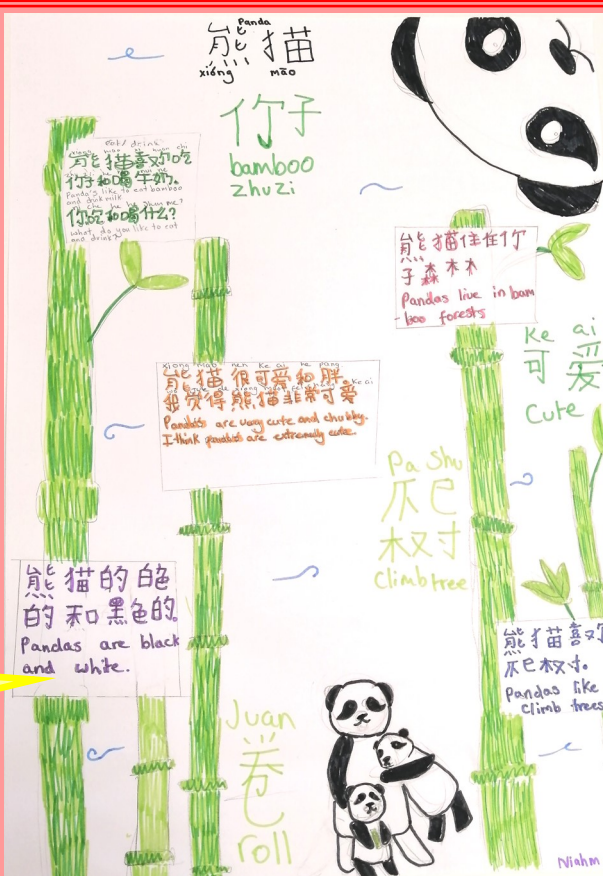 Panda
熊猫
xióng māo
你子
bamboo
zhuzi
eat/drink
熊猫喜欢吃
你子和喝牛奶。
Panda's like to eat bamboo
and drink milk
你吃和喝什么?
what do you like to eat
and drink?
熊猫住住你
子森木木
Pandas live in bam
-boo forests
Ke ai
可爱
Cute
熊猫很可爱和胖。
我觉得熊猫非常可爱
Pandas are very cute and chubby.
I think pandas are extremely cute.
Pa Shu
爬
树
Climb tree
熊猫的白色
的和黑色的.
Pandas are black
and white.
熊猫喜欢
爬树.
Pandas like
Climb trees
Juan
卷
roll
Niahm